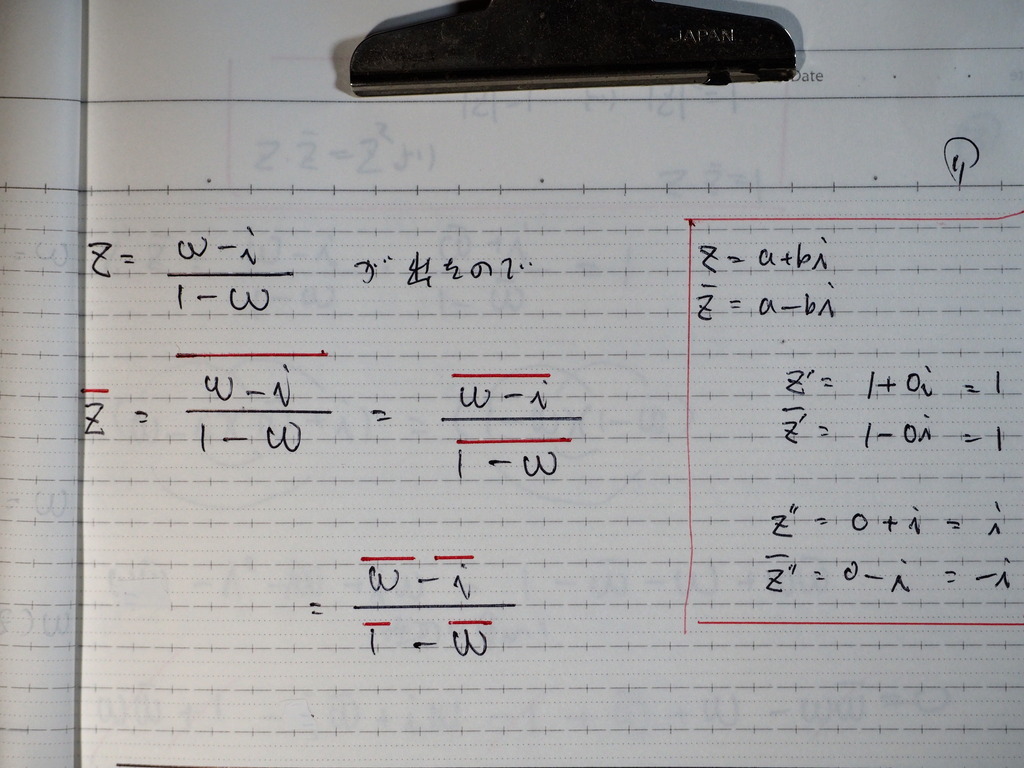 JAPAN
Date
z = (ω - i)/(1 - ω) が 出るので
z̄ = \overline{(ω - i)/(1 - ω)} = \overline{ω - i}/\overline{1 - ω}
= (ω̄ - ī)/(1̄ - ω̄)
z = a+bi
z̄ = a-bi
z' = 1+0i = 1
z̄' = 1-0i = 1
z'' = 0+i = i
z̄'' = 0-i = -i